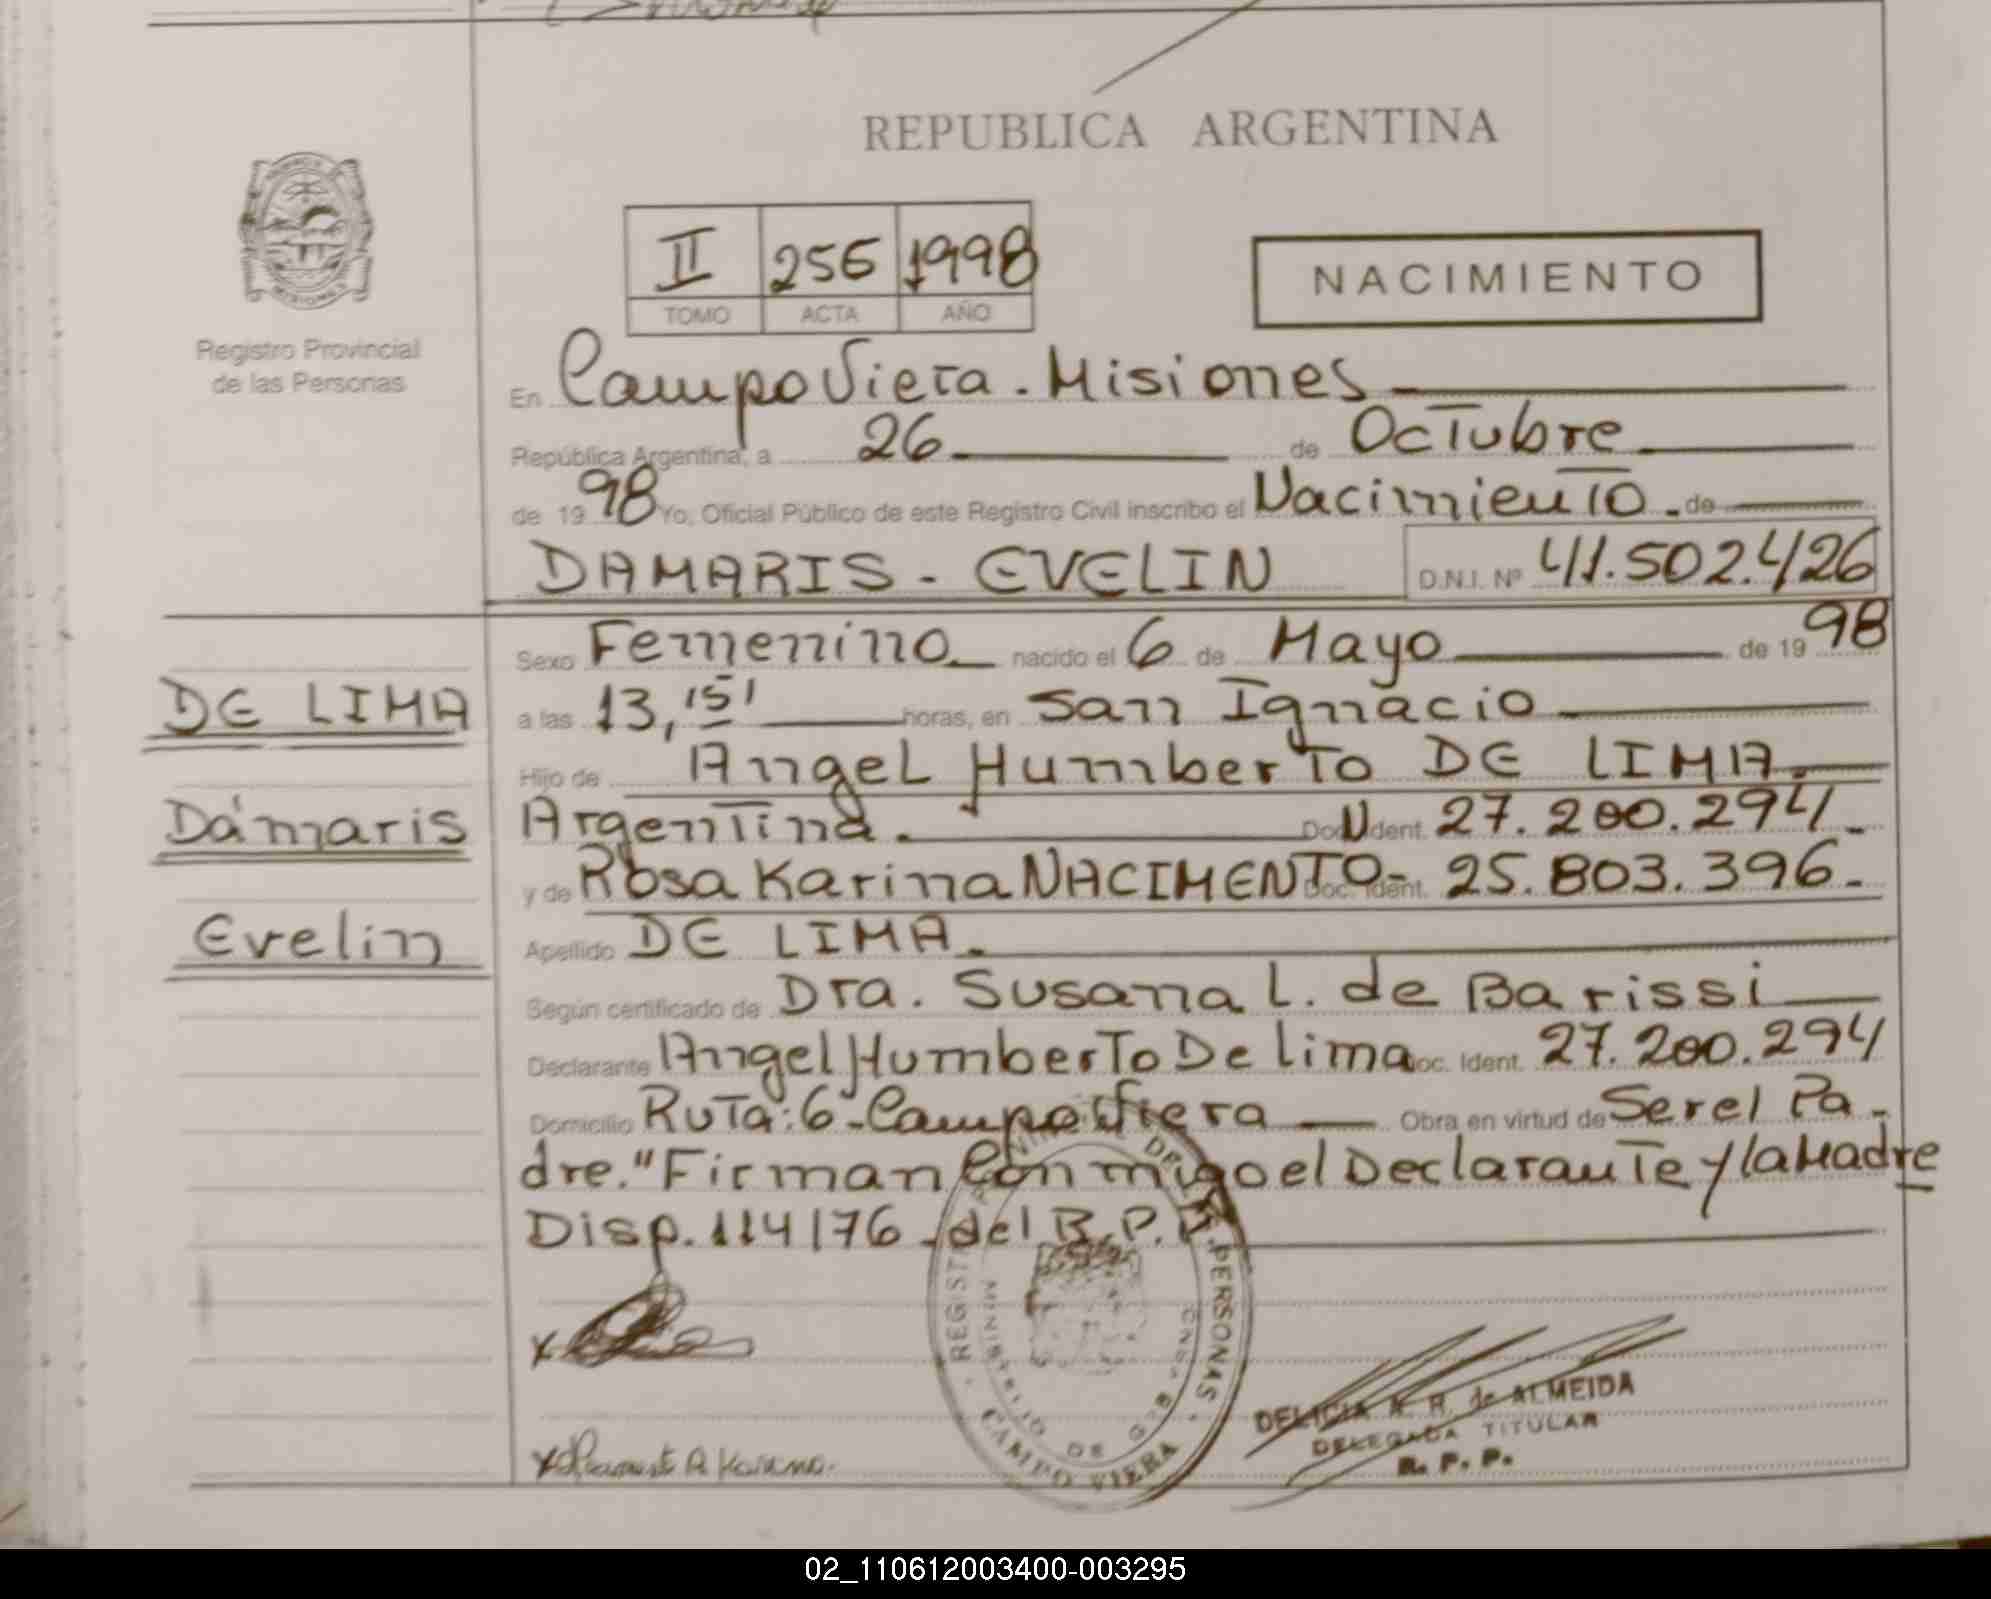 REPUBLICA ARGENTINA
II 256 1998
TOMO ACTA AÑO
NACIMIENTO
Registro Provincial
de las Personas
En Campo Viera. Misiones
República Argentina, a 26 de Octubre
de 1998 Yo, Oficial Público de este Registro Civil inscribo el Nacimiento. de
DAMARIS - EVELIN D.N.I. Nº 41.502.426
Sexo Femenino nacido el 6 de Mayo de 1998
DE LIMA
a las 13,15' horas, en San Ignacio
Hijo de Angel Humberto DE LIMA.
Dámaris
Argentina. Doc. Ident. 27.200.294
y de Rosa Karina NACIMENTO - Doc. Ident. 25.803.396
Evelin
Apellido DE LIMA.
Según certificado de Dra. Susana L. de Barissi
Declarante Angel Humberto De Lima Doc. Ident. 27.200.294
Domicilio Ruta: 6 - Campo Viera Obra en virtud de Ser el Pa-
dre. "Firman Con migo el Declarante y la Madre
Disp. 114/76 - del R.P.P.
REGISTRO PROVINCIAL DE LAS PERSONAS
MINISTERIO DE GOB
CAMPO VIERA
DELICIA N. R. de ALMEIDA
DELEGADA TITULAR
R. P. P.
02_110612003400-003295